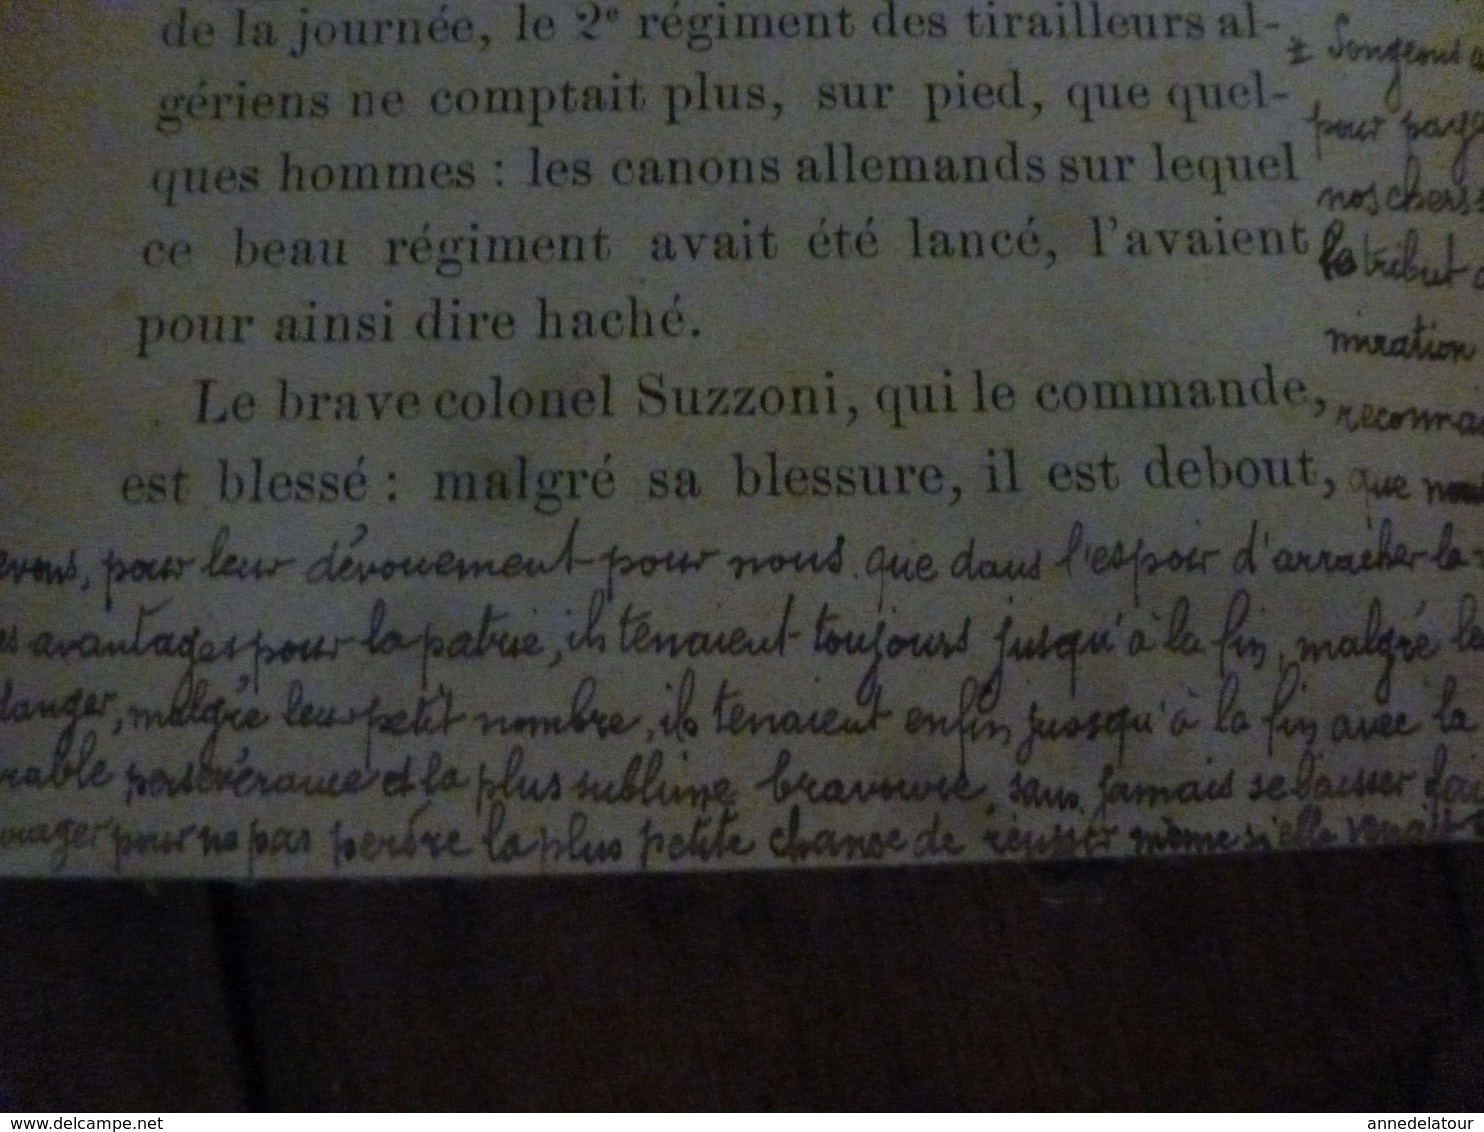 de la journée, le 2e régiment des tirailleurs al-
gériens ne comptait plus, sur pied, que quel-
ques hommes : les canons allemands sur lequel
ce beau régiment avait été lancé, l'avaient
pour ainsi dire haché.
Le brave colonel Suzzoni, qui le commande,
est blessé : malgré sa blessure, il est debout,
pour
nos chers
tribut
miration
que
pour leur dévouement pour nous que dans l'espoir d'arracher
avantages pour la patrie, ils tenaient toujours jusqu'à la fin, malgré
danger, malgré leur petit nombre, ils tenaient enfin jusqu'à la fin avec la
rable persévérance et la plus sublime bravoure, sans jamais se laisser
ourager pour ne pas perdre la plus petite chance de réussir même si elle venait
www.delcampe.net
annedelatour